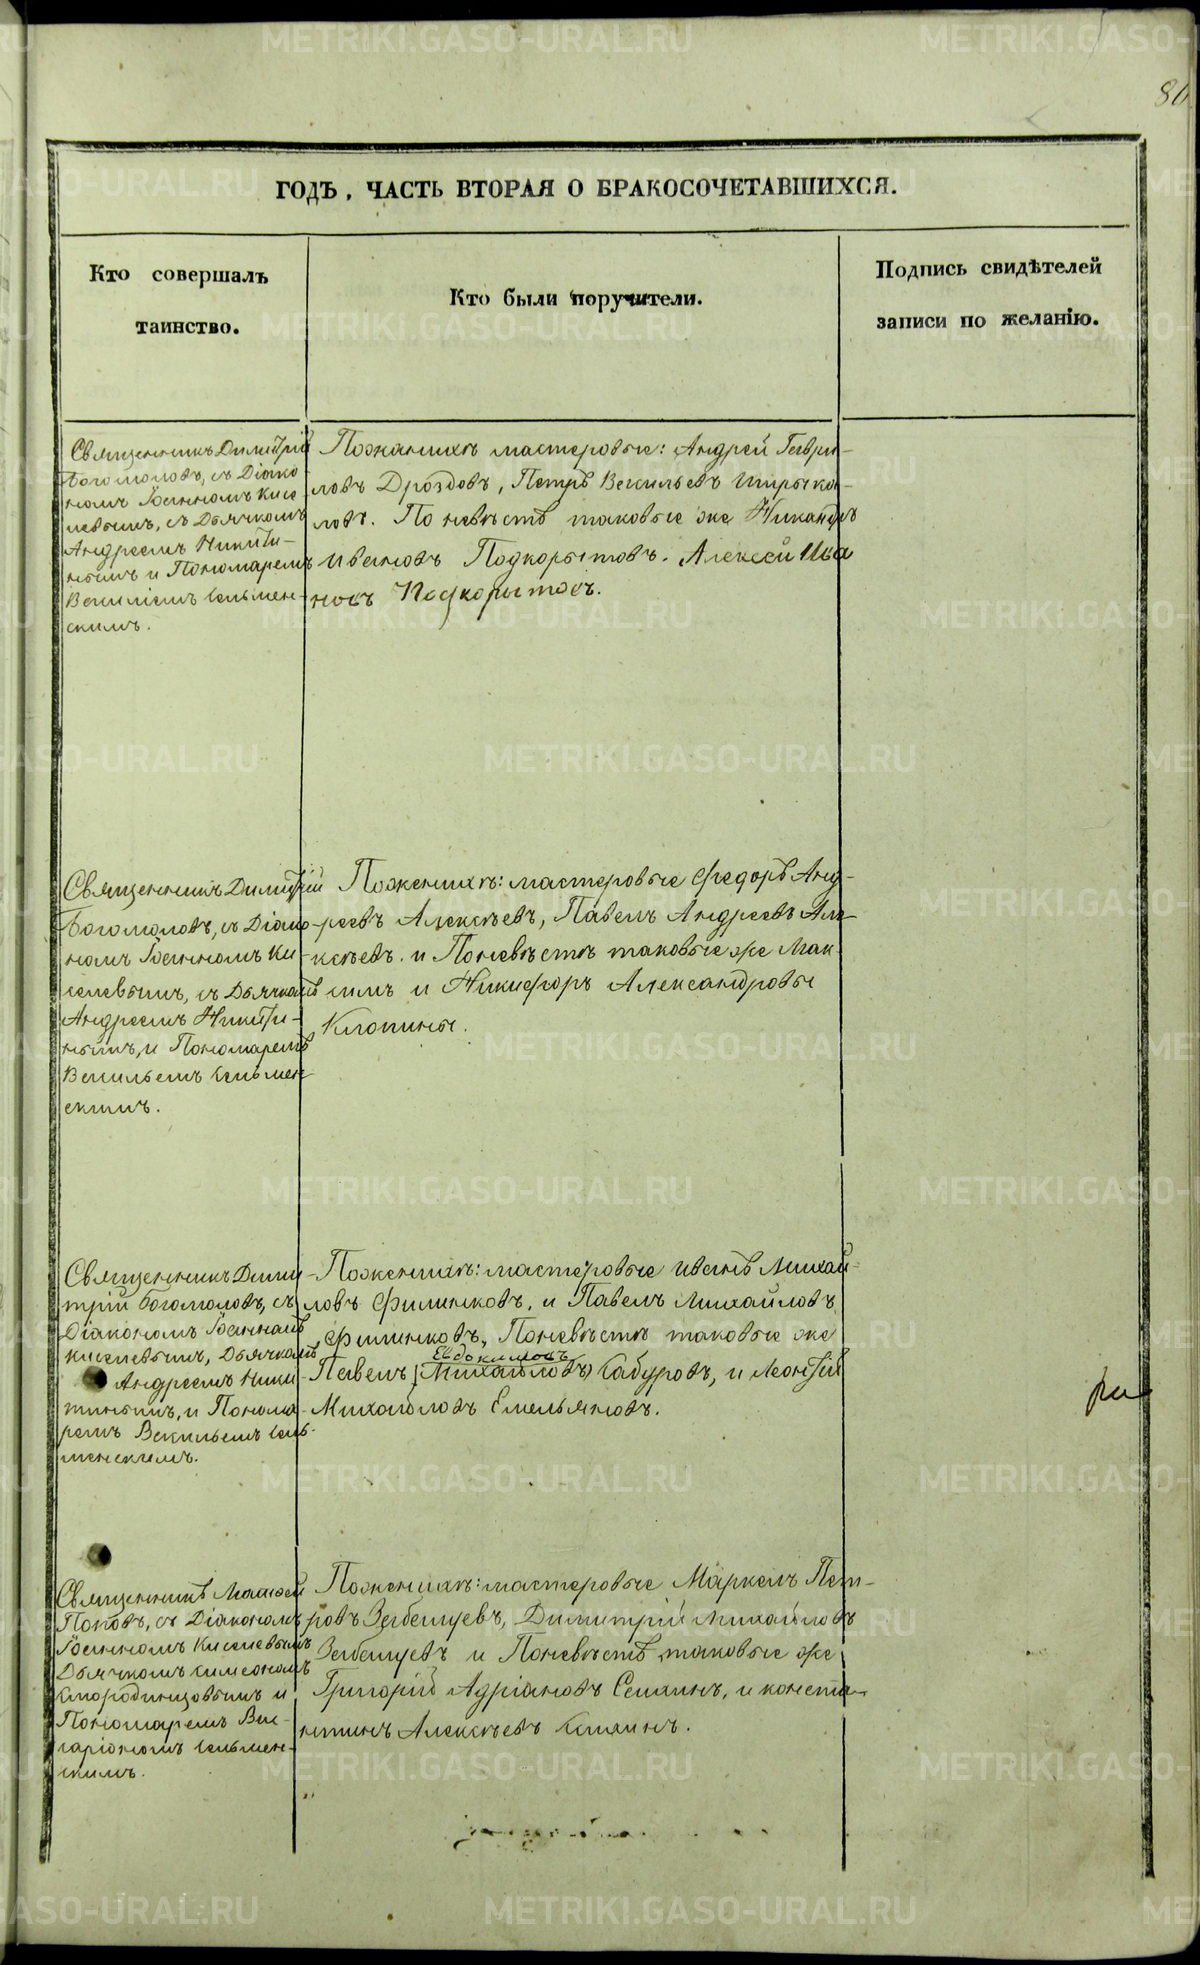 80
ГОДЪ, ЧАСТЬ ВТОРАЯ О БРАКОСОЧЕТАВШИХСЯ.
Кто совершалъ
таинство.
Кто были поручители.
Подпись свидѣтелей
записи по желанію.
Священникъ Димитрій
Богомоловъ, съ Діако
номъ Іоанномъ Кисе
левымъ, съ Дьячкомъ
Андреемъ Никити-
нымъ и Пономаремъ
Василіемъ Сельмен-
скимъ.
По женихѣ мастеровые: Андрей Гаври-
ловъ Дроздовъ, Петръ Васильевъ
ловъ. По невѣстѣ таковые же Никандръ
Ивановъ Подкорытовъ. Алексѣй Ива
новъ Подкорытовъ.
Священникъ Димитрій
Богомоловъ, съ Діако-
номъ Іоанномъ Ки-
селевымъ, съ Дьячкомъ
Андреемъ Никити-
нымъ, и Пономаремъ
Васильемъ Сельмен-
скимъ.
По женихѣ: мастеровые Федоръ Анд-
реевъ Алексѣевъ, Павелъ Андреевъ Але-
ксѣевъ. и По невѣстѣ таковые же Мак-
симъ и Никифоръ Александровы
Клопины.
Священникъ Дими-
трій Богомоловъ, съ
Діакономъ Іоанномъ
Киселевымъ, Дьячкомъ
Андреемъ Ники-
тинымъ, и Понома-
ремъ Васильемъ Сель-
менскимъ.
По женихѣ: мастеровые Иванъ Михай-
ловъ Филинковъ, и Павелъ Михайловъ
Филинковъ, По невѣстѣ таковые же
Евдокимовъ
Павелъ (Михайловъ) Кабуровъ, и Леонтій
Михайловъ Емельяновъ.
Священникъ Матѳей
Поповъ, съ Діакономъ
Іоанномъ Киселевымъ
Дьячкомъ Симеономъ
Смородинцовымъ и
Пономаремъ Вис-
саріономъ Сельмен-
скимъ.
По женихѣ: мастеровые Маркелъ Пет-
ровъ Зербенцевъ, Димитрій Михайловъ
Зербенцевъ и По невѣстѣ таковые же
Григорій Адріановъ Семинъ, и Конста-
нтинъ Алексѣевъ
METRIKI.GASO-URAL.RU